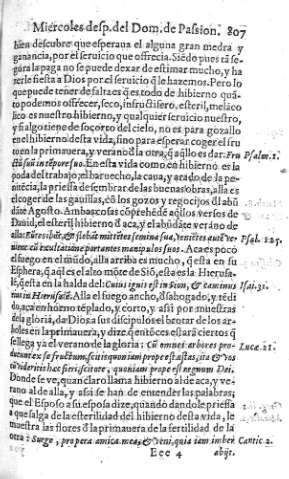 Miercoles desp. del Dom. de Passion. 807
bien descubre que esperaua el alguna gran medra y
ganancia, por el seruicio que ofrecia. Siẽdo pues tã se-
gura la paga no se puede dexar de estimar mucho, y ha
zerle fiesta a Dios por el seruicio q̃ le hazemos. Pero lo
que puede tener de faltas es q̃ es todo de hibierno quã-
to podemos ofrecer, seco, infructifero, esteril, melãco
lico es nuestro hibierno, y qualquier seruicio nuestro,
y si algo tiene de socorro del cielo, no es para gozallo
en el hibierno desta vida, sino para esperar coger el fru
to en la primauera, y verano d̃ la otra, q̃ aq̃llo es dar: Fru Psalm. 1.
ctũ suũ in tẽpore suo. En esta vida como en hibierno es la
poda del trabajo; el barhuecho, la caua, y arado de la pe-
nitẽcia, la priessa de sembrar de las buenas obras, alla es
el coger de las gauillas, cõ los gozos y regocijos dl abũ
dãte Agosto. Ambas cosas cõprehẽde aq̃llos versos de
Dauid, el esteril hibierno d̃ aca, y el abũdãte verano de
alla: Euntes ibãt, & flebãt mittẽtes semina sua, venietes autẽ ve Psal. 125.
nient cũ exultatione portantes manipulos suos. Aca es poco
el fuego en el mũdo, alla arriba es mucho, q̃ esta en su
Esphera, q̃ aql es el alto mõte de Siõ, esta es la Hierusa-
lẽ, q̃ esta en la halda del: Cuius ignis est in Sion, & caminus Isai. 31.
eius in Hierusalẽ. Alla el fuego ancho, d̃sahogado, y tẽdi
do, aca en horno tẽplado, y corto, y assi por muestras
de la gloria, da Dios a sus discipulos el brotar de los ar-
boles en la primauera, y dize q̃ entõces estarã ciertos q̃
se llega ya el verano de la gloria: Cũ omnes arbores pro- Lucæ. 21.
ducunt ex se fructum, scitis quoniam prope est æstas, ita & vos
cũ videritis hæc fieri, scitote, quoniam prope est regnum Dei.
Donde se ve, quan claro llama hibierno al de aca, y ve-
rano al de alla, y assi se han de entender las palabras;
que el Esposo a su esposa dize, quando dandole priessa
a que salga de la esterilidad del hibierno desta vida, le
muestra las flores d̃ la primauera de la fertilidad de la
otra: Surge, propera amica mea, & veni, quia iam imber Cantic. 2.
Eee 4 abijt.